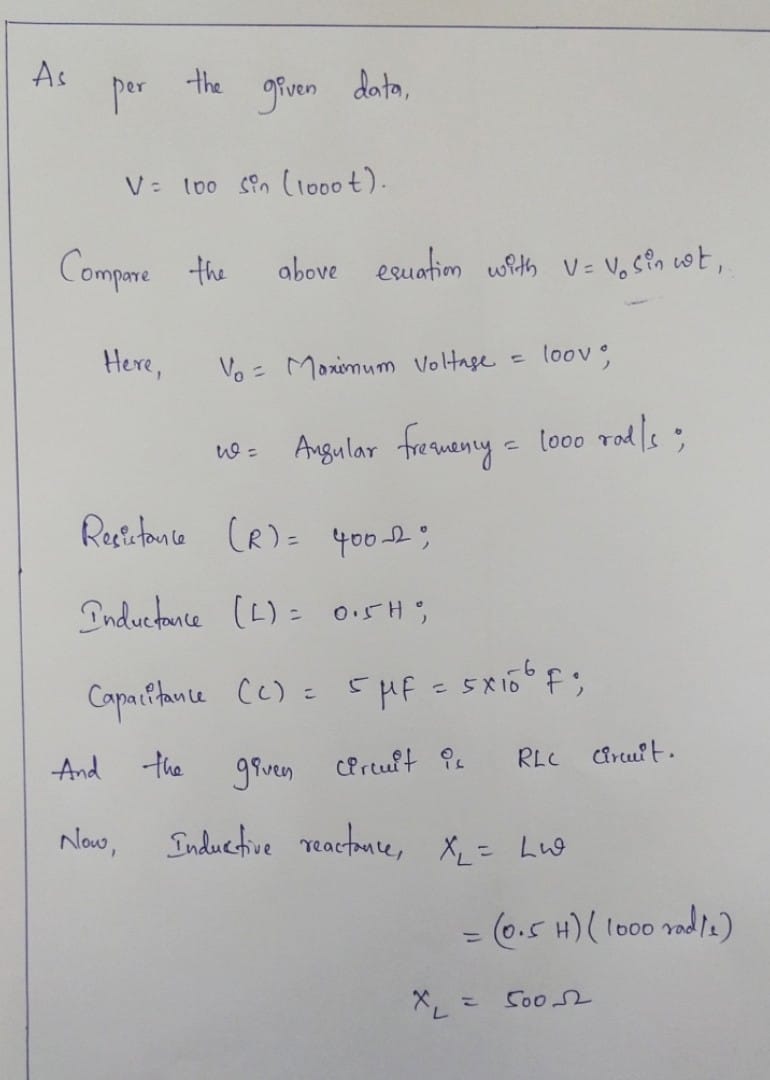 As per the given data,
V = 100 sin (1000t).
Compare the above equation with V = V₀ sin ωt,
Here, V₀ = Maximum Voltage = 100V;
ω = Angular frequency = 1000 rad/s;
Resistance (R) = 400 Ω;
Inductance (L) = 0.5 H;
Capacitance (C) = 5 μF = 5×10⁻⁶ F;
And the given circuit is RLC circuit.
Now, Inductive reactance, X_L = Lω
= (0.5 H)(1000 rad/s)
X_L = 500 Ω